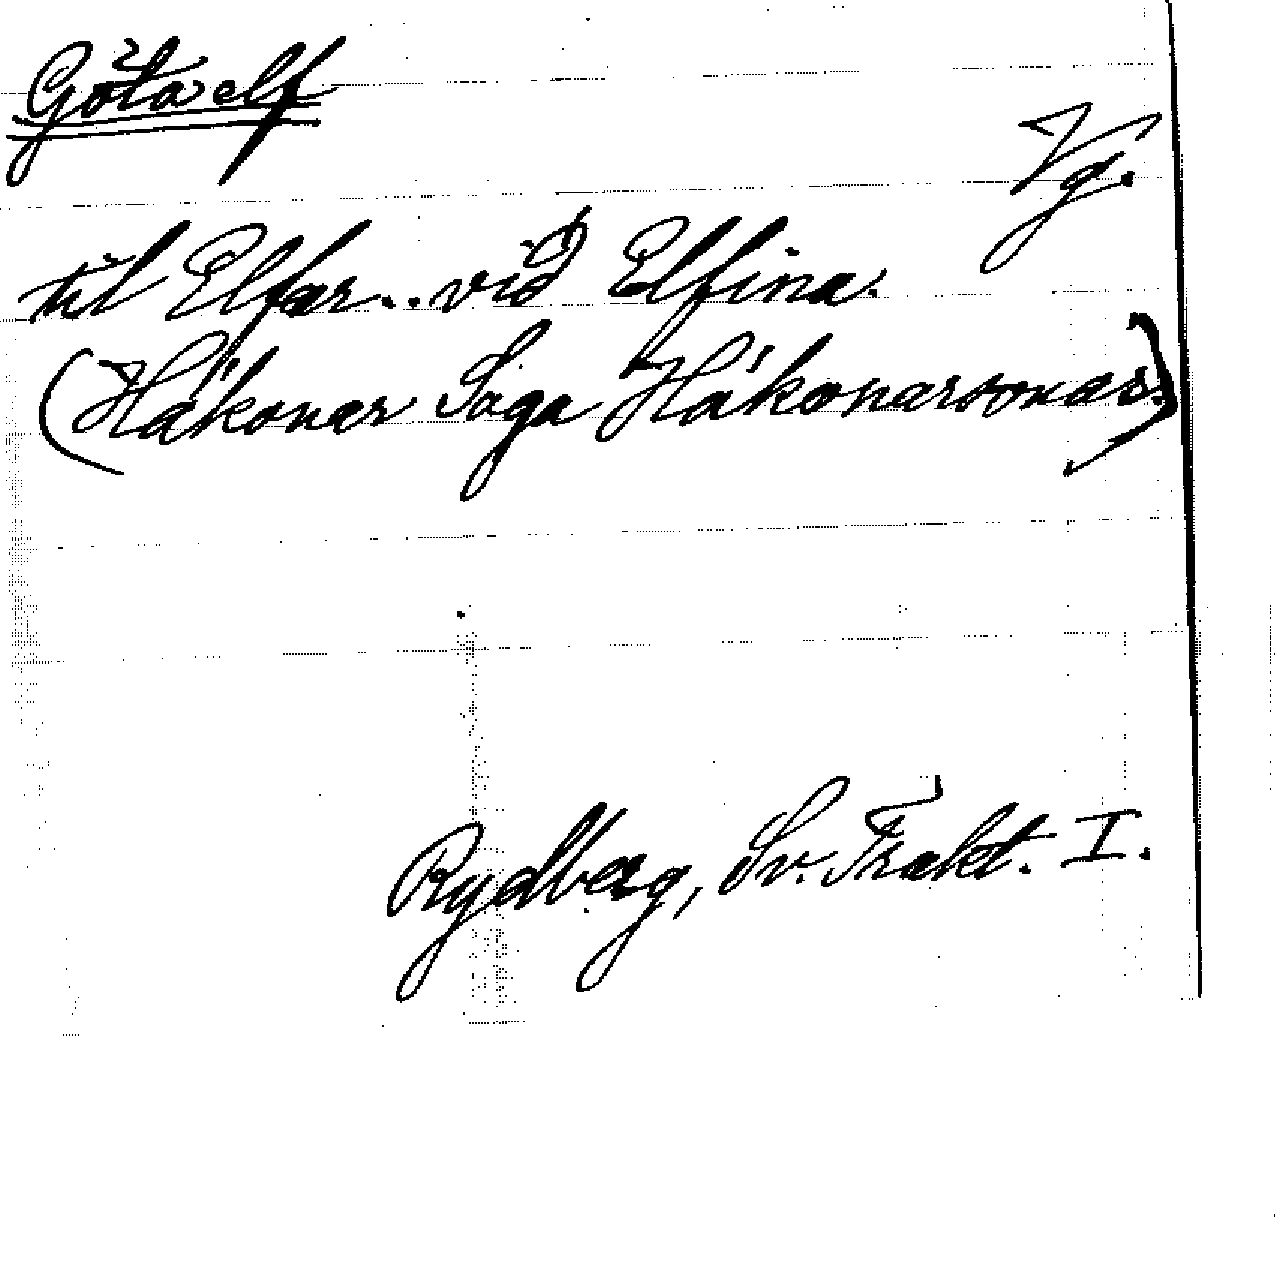 Göta elf
Vg.
til Elfar.. við Elfina.
(Hákonar Saga Hákonarsonar.)
Rydberg, Sv. Trakt. I.